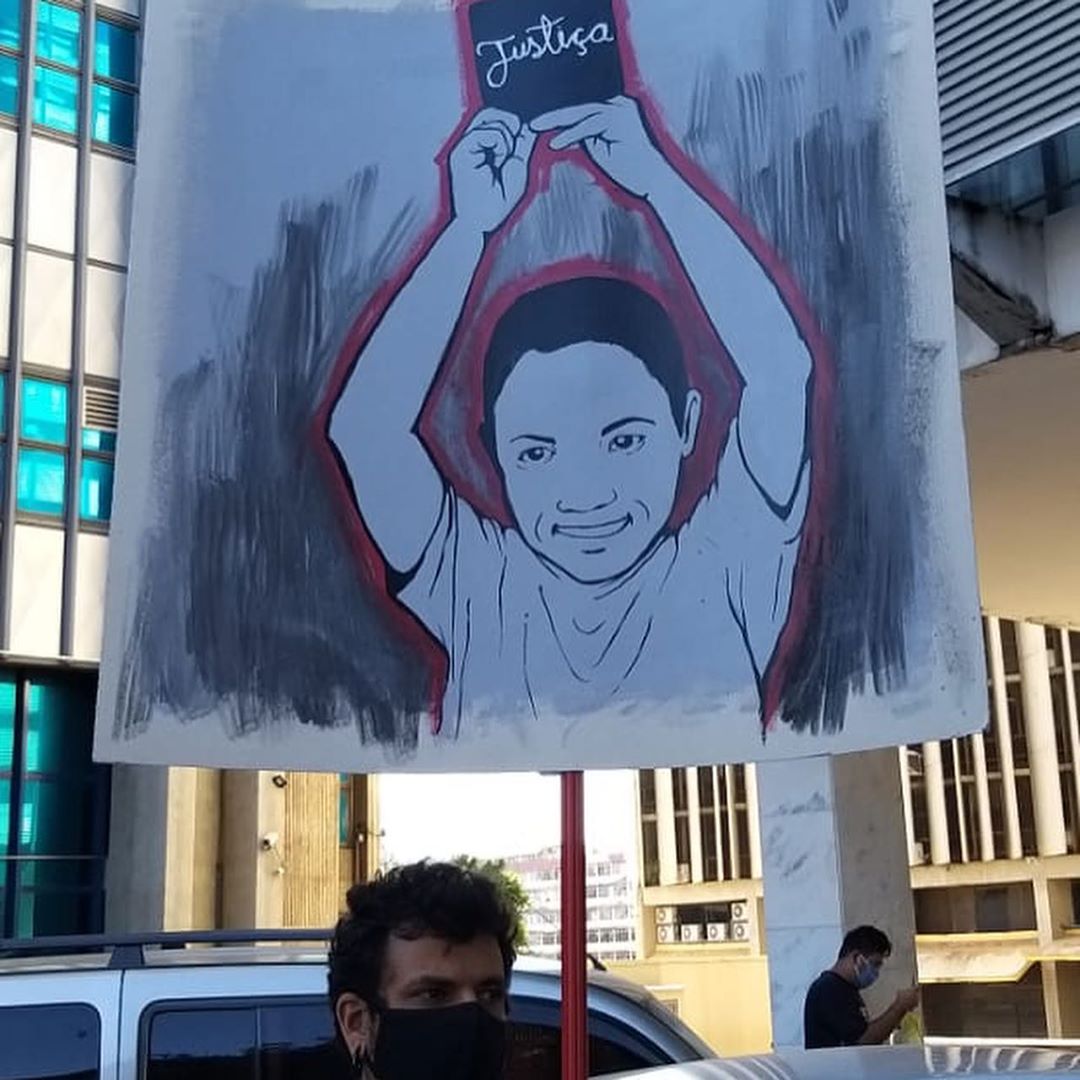 Justiça